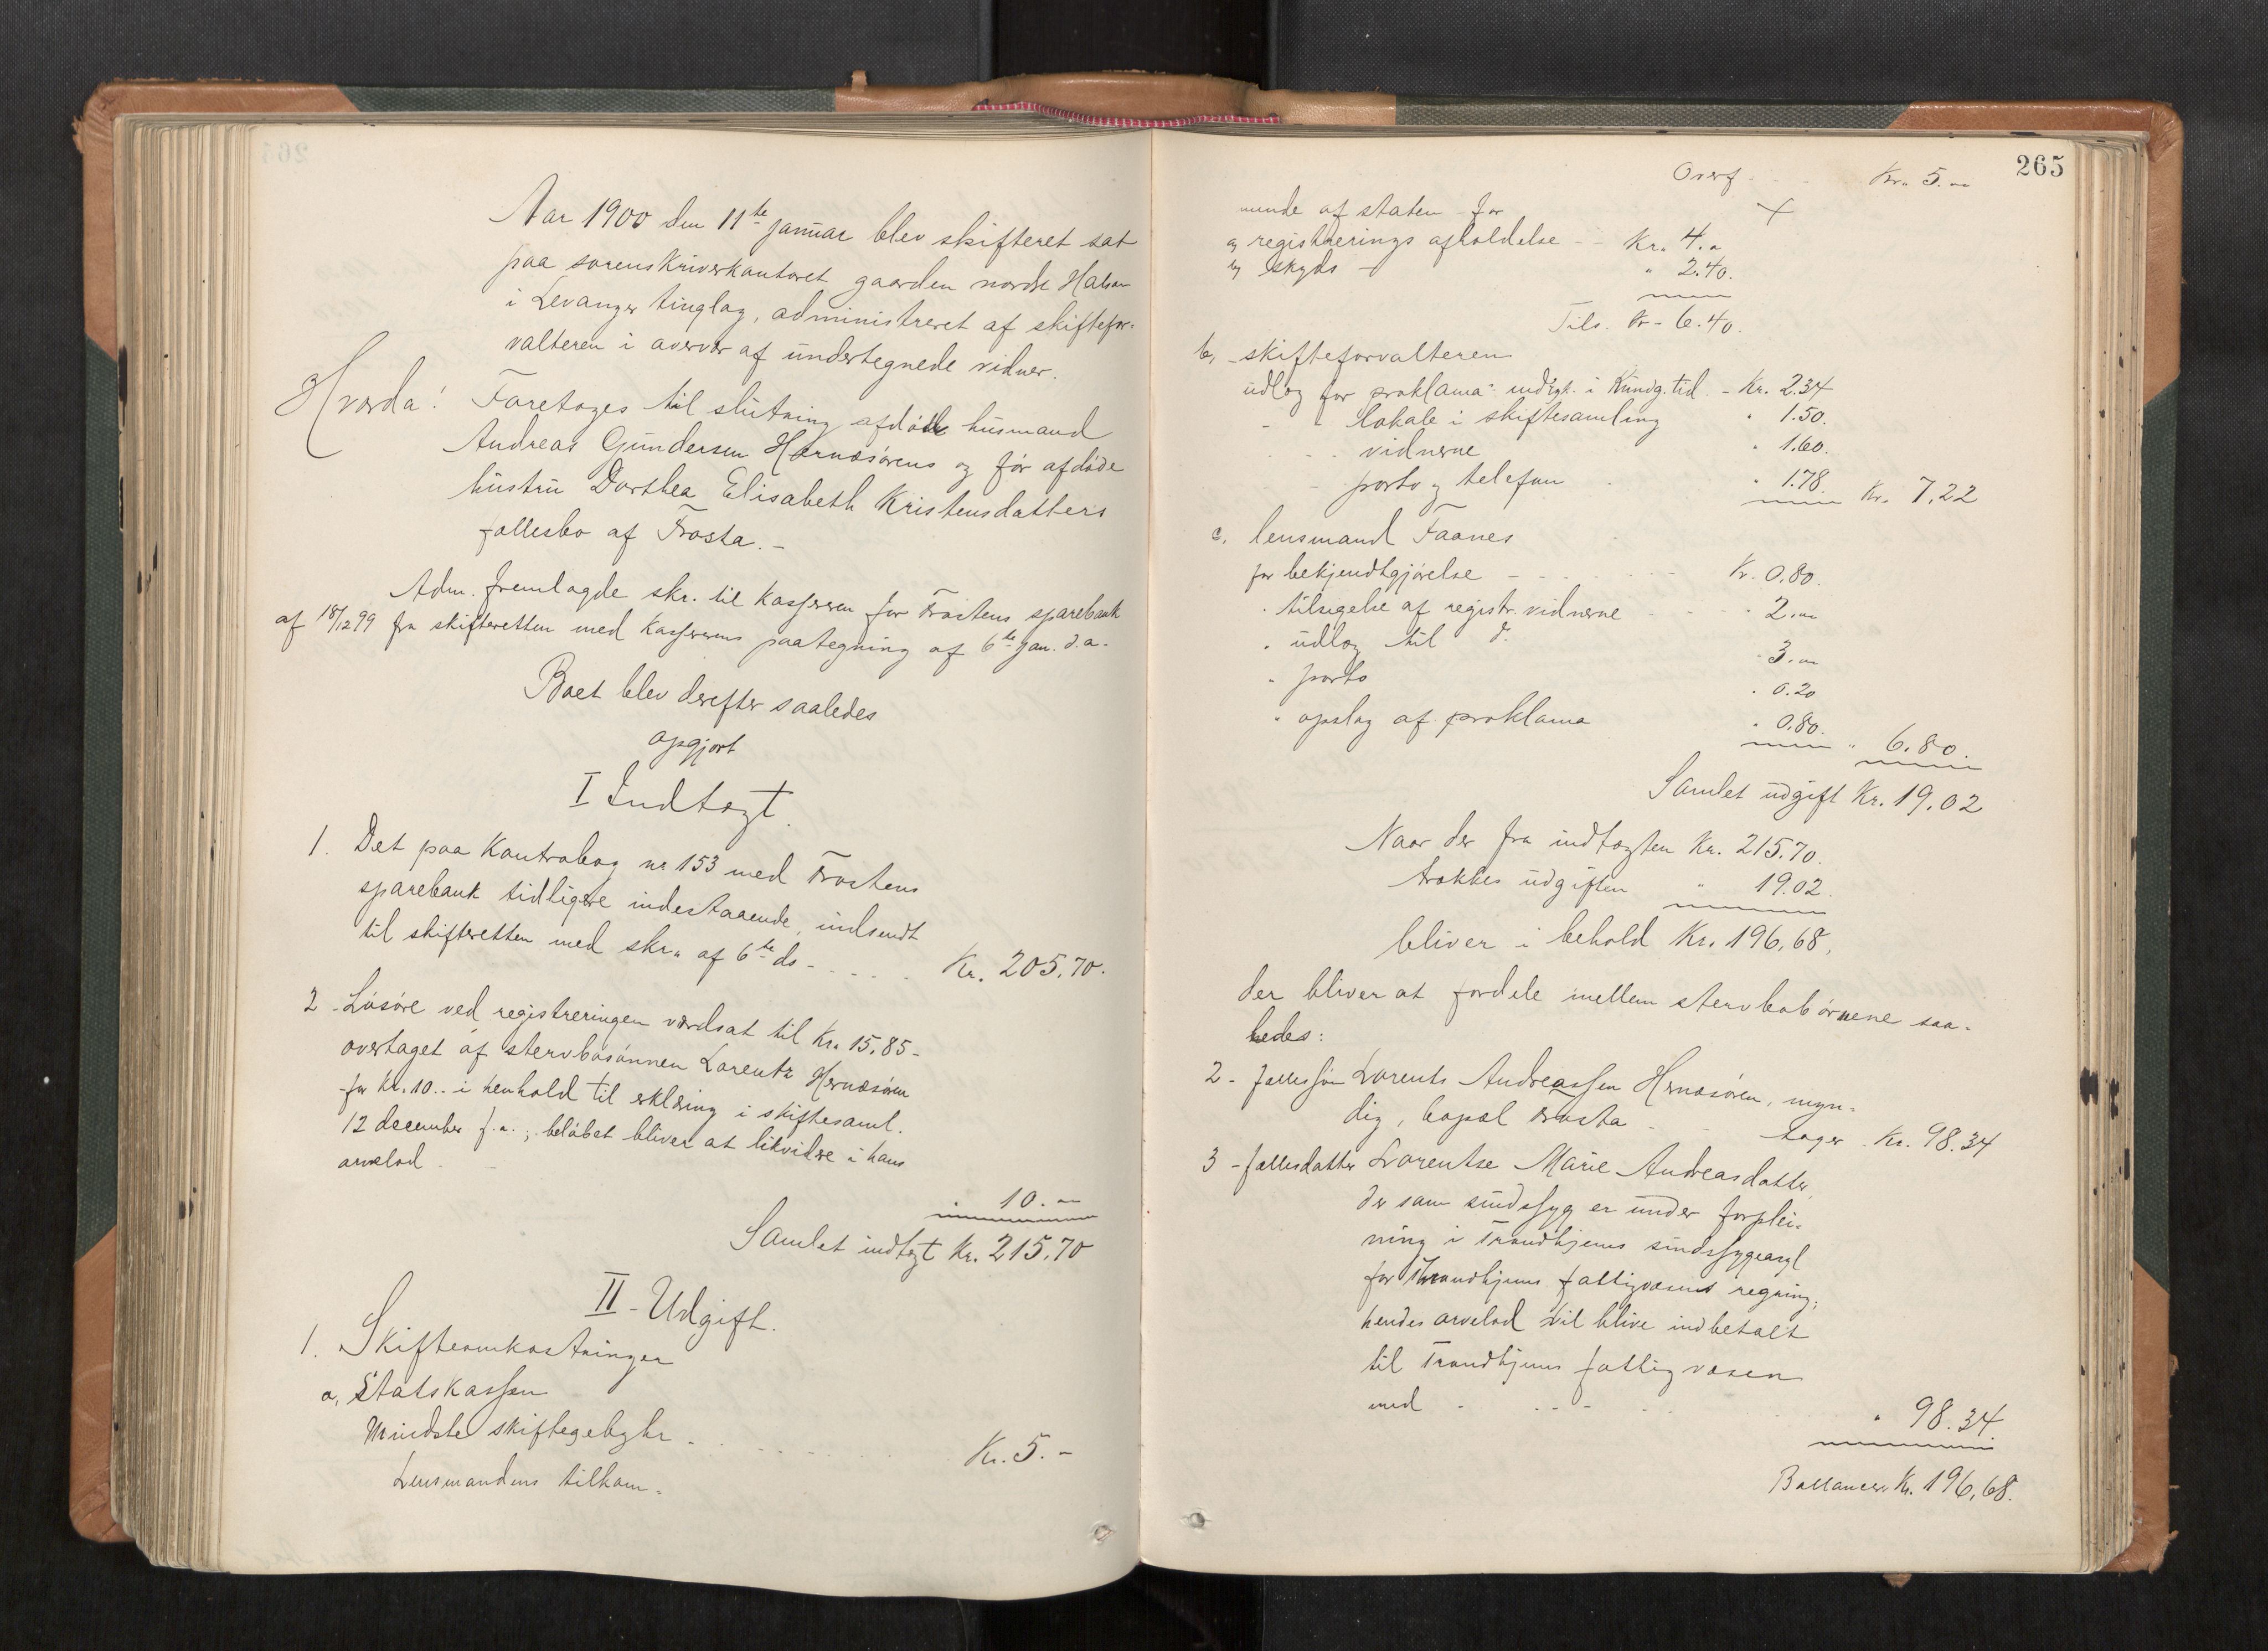 Aar 1900 den 11te januar blev skifteret sat
paa sorenskriverkontoret gaarden nordre Halsan
i Levanger tinglag, administreret af skiftefor-
valteren i overvær af undertegnede vidner.
Hvorda:
Foretoges til slutning afdøde husmand
Andreas Gundersen Hernæsørens og før afdøde
hustru Dorthea Elisabeth Kristensdatters
fællesbo af Frosta.-
Adm. fremlagde skr. til kassereren for Frostens sparebank
af 18/12 99 fra skifteretten med kassererens paategning af 6te jan. d.a.
Boet blev derefter saaledes
opgjort
I Indtægt.
1. Det paa Kontrabog nr 153 med Frostens
sparebank tidligere indestaaende, indsendt
til skifteretten med skr. af 6te ds - - - - Kr. 205,70.
2 - Løsøre ved registreringen værdsat til Kr. 15,85 -
overtaget af stervbosønnen Lorentz Hernæsøren
- for Kr. 10.. i henhold til erklæring i skiftesaml.
12 december f.a.; beløbet bliver at likvidere i hans
arvelod . - " 10. -
Samlet indtægt Kr. 215,70
II - Udgift.
1. Skifteomkostninger
a, Statskassen
Mindste skiftegebyhr - - - - - Kr. 5. -
Lensmandens tilkom-
265
Overf - - - Kr. 5. -
mende af staten for
a, registrerings afholdelse - - Kr. 4. -
b, skyds - " 2.40.
Tils. Kr - 6.40.
b, - skifteforvalteren
udlæg for proklama indryk. i Kundg.tid. - Kr. 2.34
- - lokale i skiftesamling " 1.50.
- - - vidnerne " 1.60.
- - porto og telefon " 1.78. Kr. 7.22
c, lensmand Faanes
for bekjendtgjørelse - - - - - Kr. 0.80.
" tilsigelse af registr. vidnerne - - - " 2. -
" udlæg til do. " 3. -
" porto " 0.20
" opslag af proklama " 0.80. " 6.80.
Samlet udgift Kr. 19,02
Naar der fra indtægten Kr. 215.70.
trækkes udgiften " 19.02.
bliver i behold Kr. 196,68,
der bliver at fordele mellem stervbobørnene saa-
ledes:
2 - fællessøn Lorents Andreassen Hernæsøren, myn-
dig, bopæl Frosta - - tager Kr. 98.34
3 - fællesdatter Lorentse Marie Andreasdatter,
der som sindssyg er under forplei-
ning i Trondhjems sindssygeasyl
for Trondhjems fattigvæsens regning;
hendes arvelod vil blive indbetalt
til Trondhjems fattigvæsen
med - - - - - " 98.34.
Ballancerer Kr. 196,68.